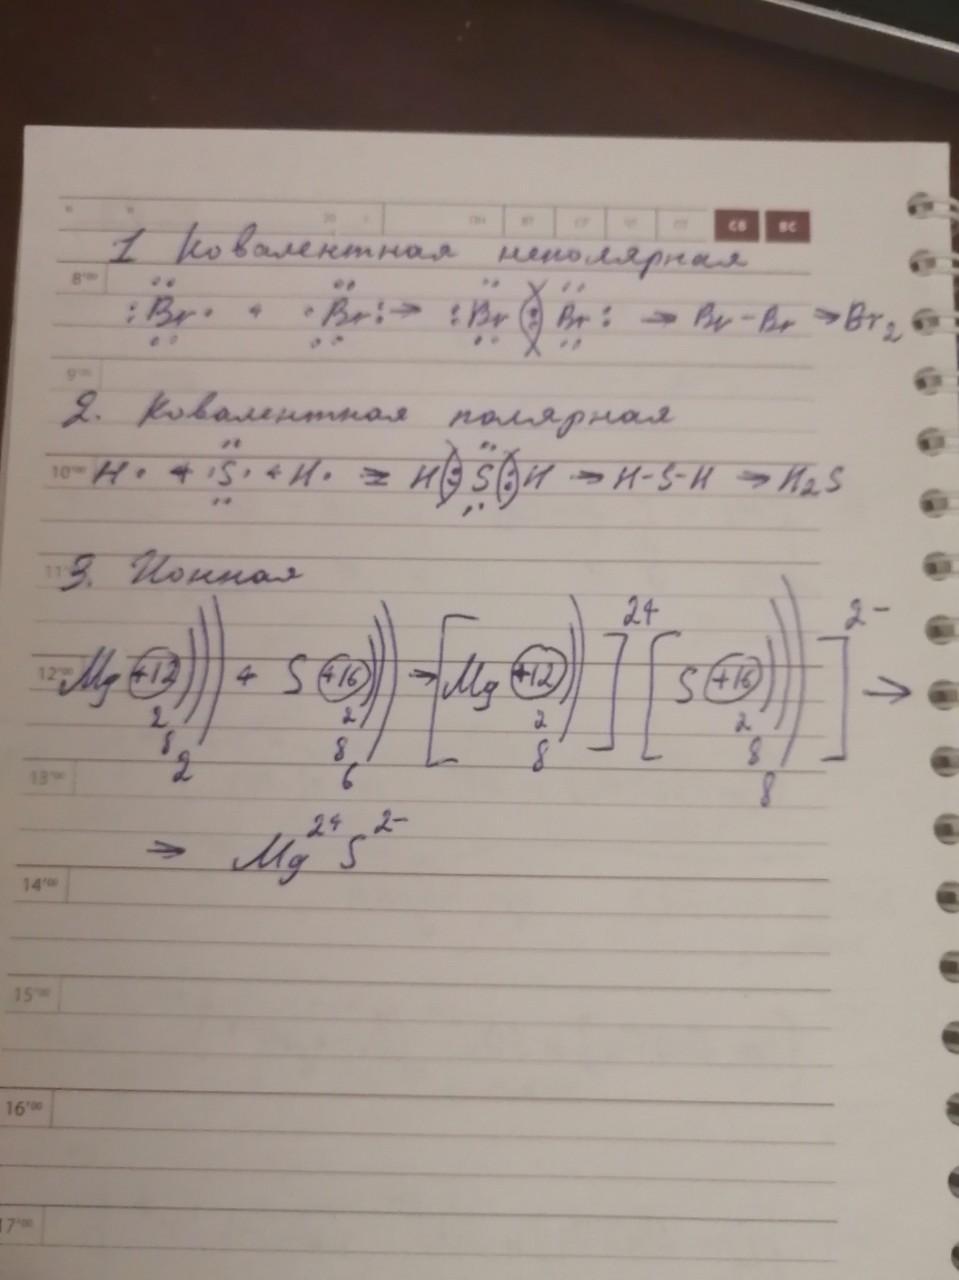 пн вт ср чт пт сб вс
1 Ковалентная неполярная
8'00
:Br· + ·Br: → :Br(:)Br: → Br-Br → Br2
9'00
2. Ковалентная полярная
10'00 H· + ·S· + H· = H(:)S(:)H → H-S-H → H2S
11'00 3. Ионная
12'00 Mg (+12))) + S (+16))) → [Mg (+12))]2+ [S (+16)))]2- →
2 2 2 2
8 8 8 8
2 6 8
13'00
→ Mg2+ S2-
14'00
15'00
16'00
17'00